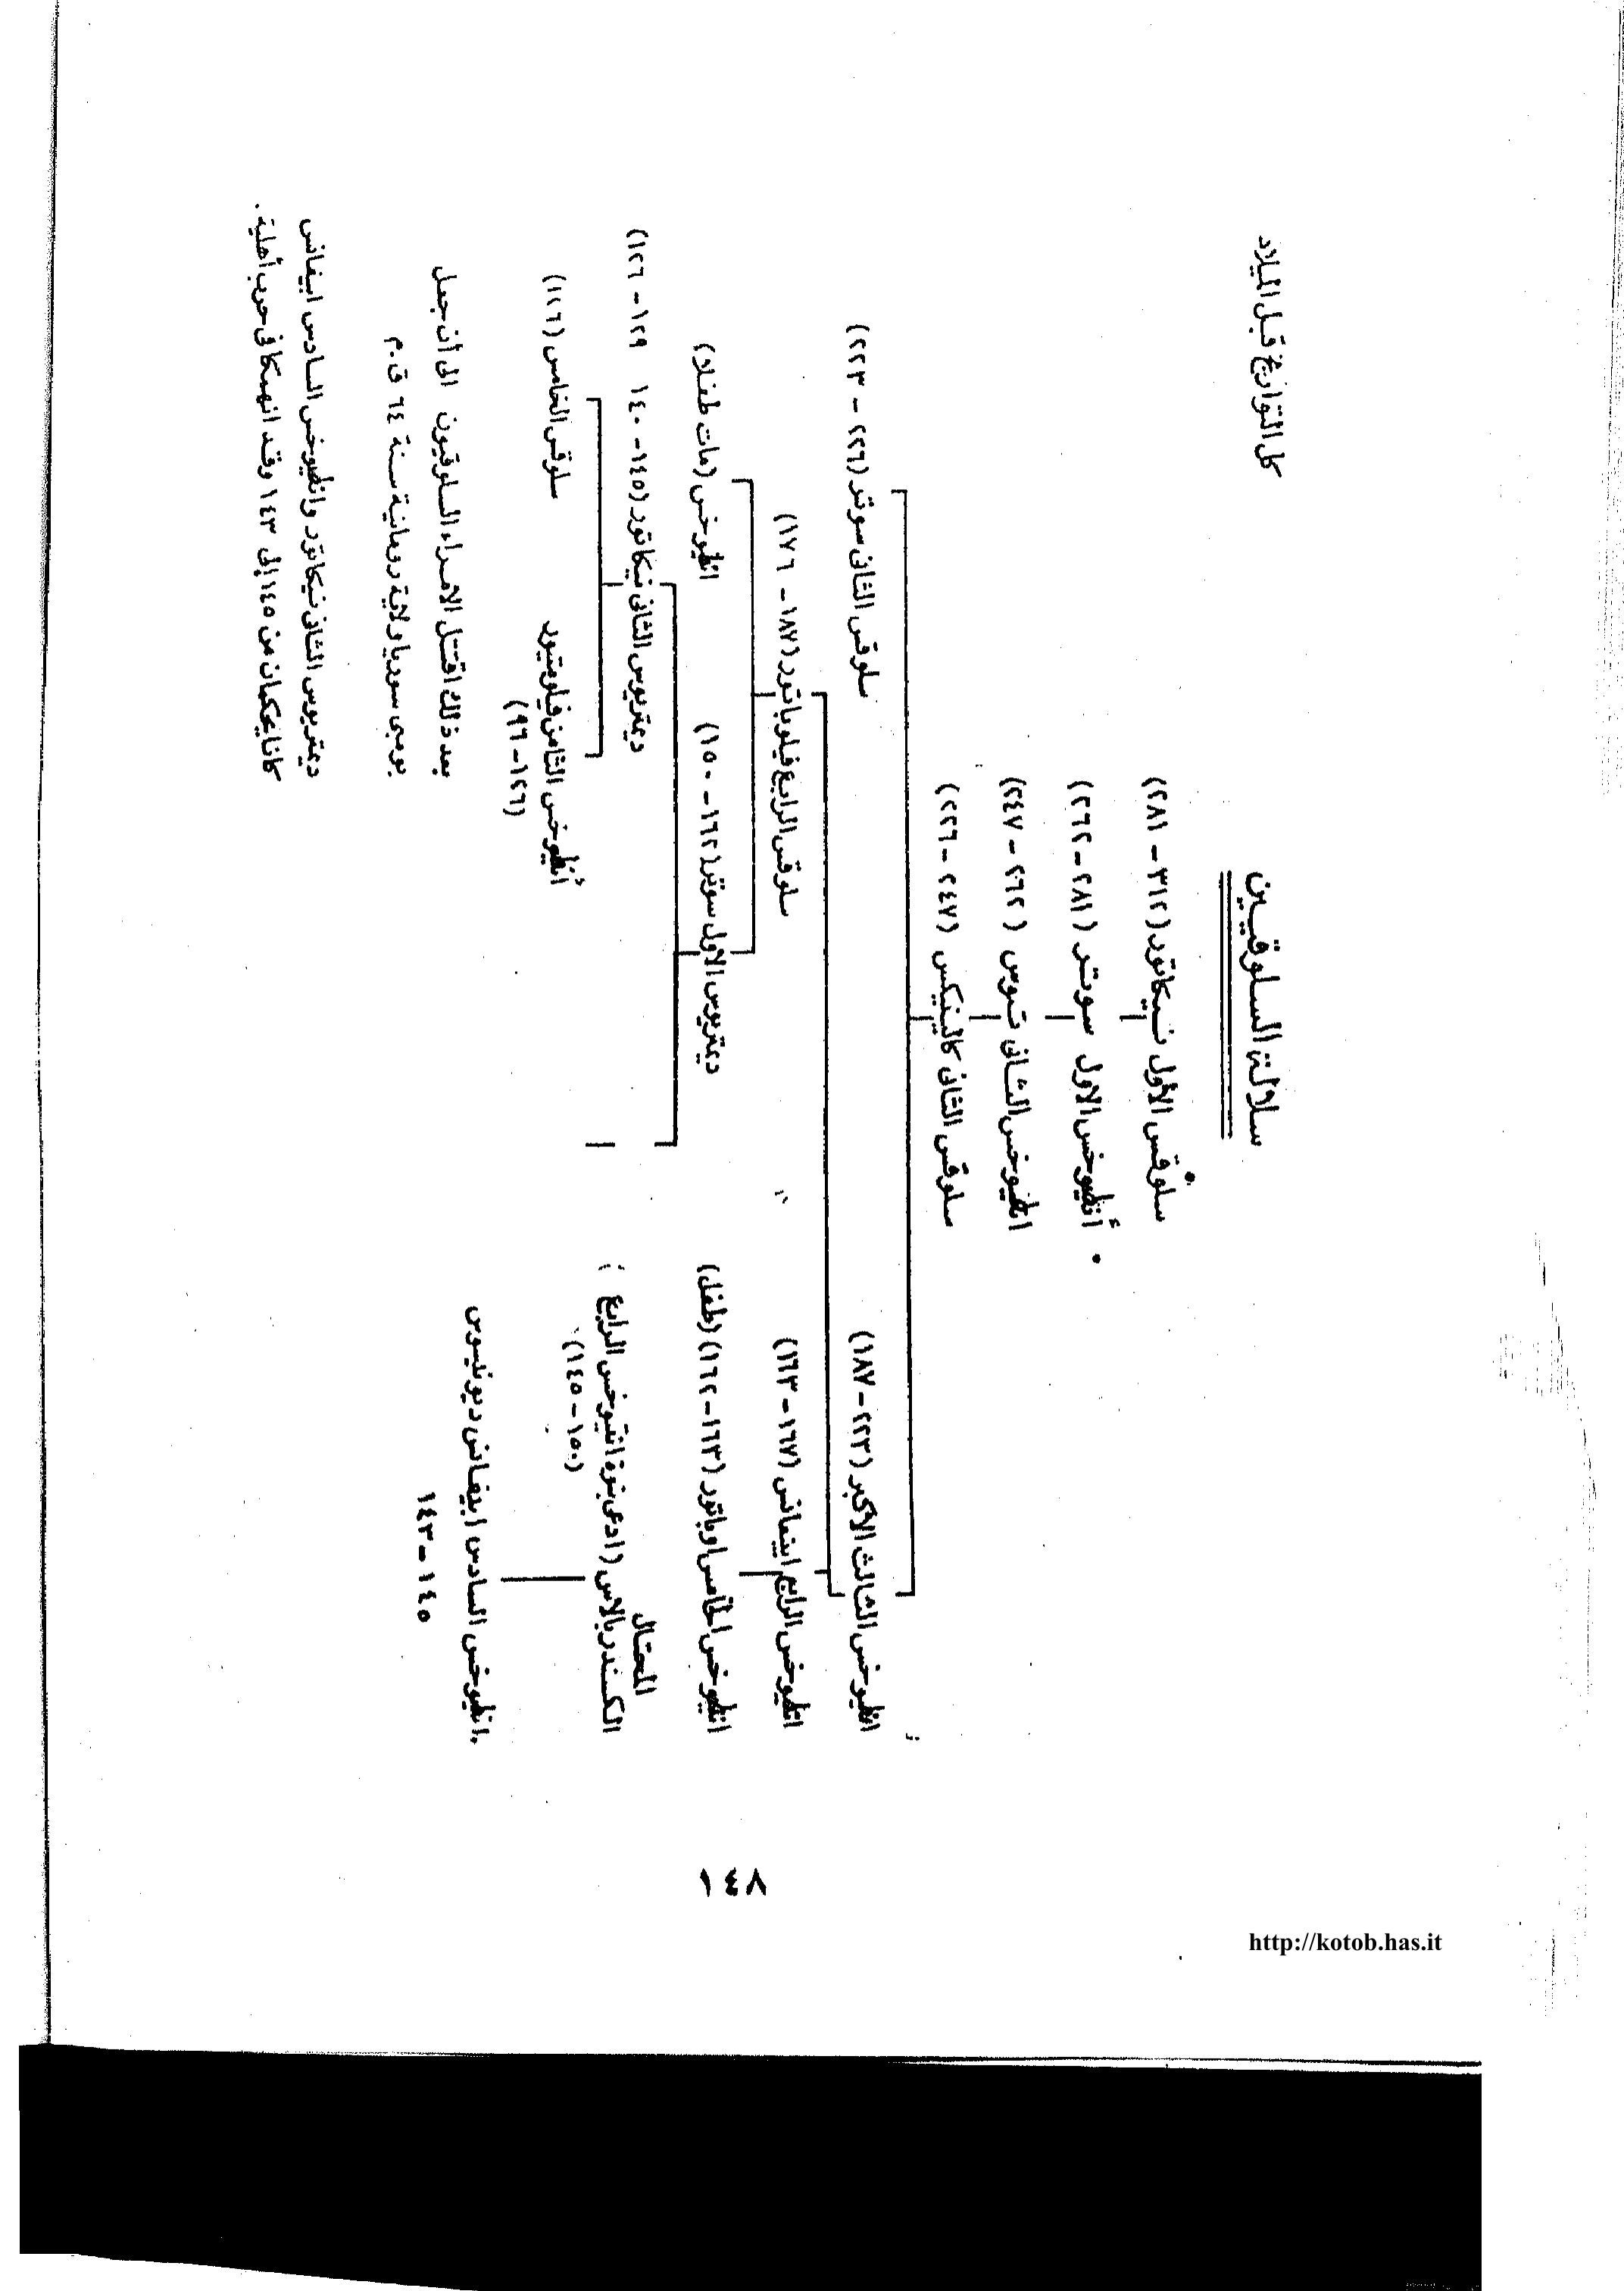 كل التواريخ قبل الميلاد
سلالة السلوقيين
سلوقس الأول نيكاتور (٣١٢ - ٢٨١)
أنطيوخس الاول سوتر (٢٨١ - ٢٦٢)
انطيوخس الثانى تيوس (٢٦٢ - ٢٤٧)
سلوقس الثانى كالينيكس (٢٤٧ - ٢٢٦)
انطيوخس الثالث الأكبر (٢٢٣ - ١٨٧)
سلوقس الثانى سوتر (٢٢٦ - ٢٢٣)
انطيوخس الرابع ابيفانس (١٦٧ - ١٦٣)
سلوقس الرابع فيلوباتور (١٨٧ - ١٧٦)
انطيوخس الخامس اوباتور (١٦٣ - ١٦٢) (طفل)
ديمتريوس الاول سوتر (١٦٢ - ١٥٠)
انطيوخس (مات طفلا)
المحتال
الكسندر بالاس (ادعى بنوة انتيوخس الرابع
(١٥٠ - ١٤٥)
ديمتريوس الثانى نيكاتور (١٤٥ - ١٤٠ ١٢٩ - ١٢٦)
أنطيوخس الثامن فيلوميتور
(١٢٦ - ٩٦)
سلوقس الخامس (١٢٦)
انطيوخس السادس ابيفانس ديونيسوس
١٤٥ - ١٤٣
بعد ذلك اقتتل الامراء السلوقيون الى أن جعل
بومبى سوريا ولاية رومانية سنة ٦٤ ق.م
ديمتريوس الثانى نيكاتور وانطيوخس السادس ابيفانس
كانا يحكمان من ١٤٥ إلى ١٤٣ وقد انهمكا فى حرب أهلية .
٧٤١
http://kotob.has.it